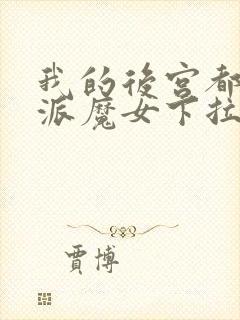 我的後宮都
派魔女卞拉
賈博